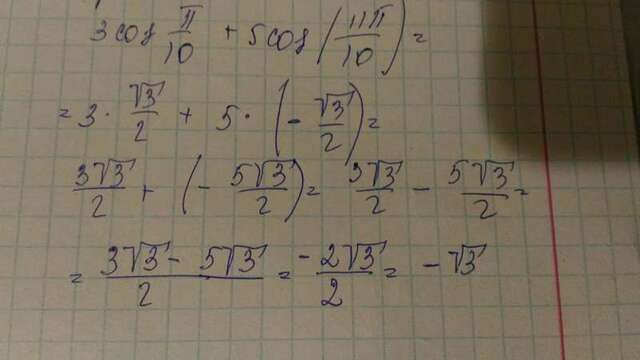 3 cos π/10 + 5 cos (11π/10) =
= 3 · √3/2 + 5 · (- √3/2) =
3√3/2 + (- 5√3/2) = 3√3/2 - 5√3/2 =
= 3√3 - 5√3/2 = - 2√3/2 = - √3